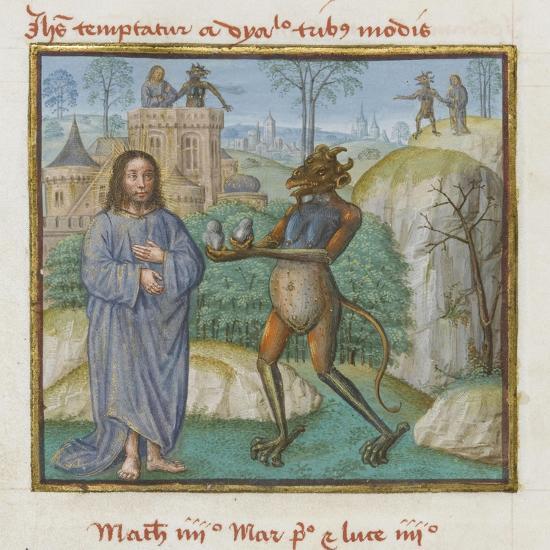 Ihs temptatur a dyalo tribꝰ modis
Math iiiiº Mar pº & luce iiiiº